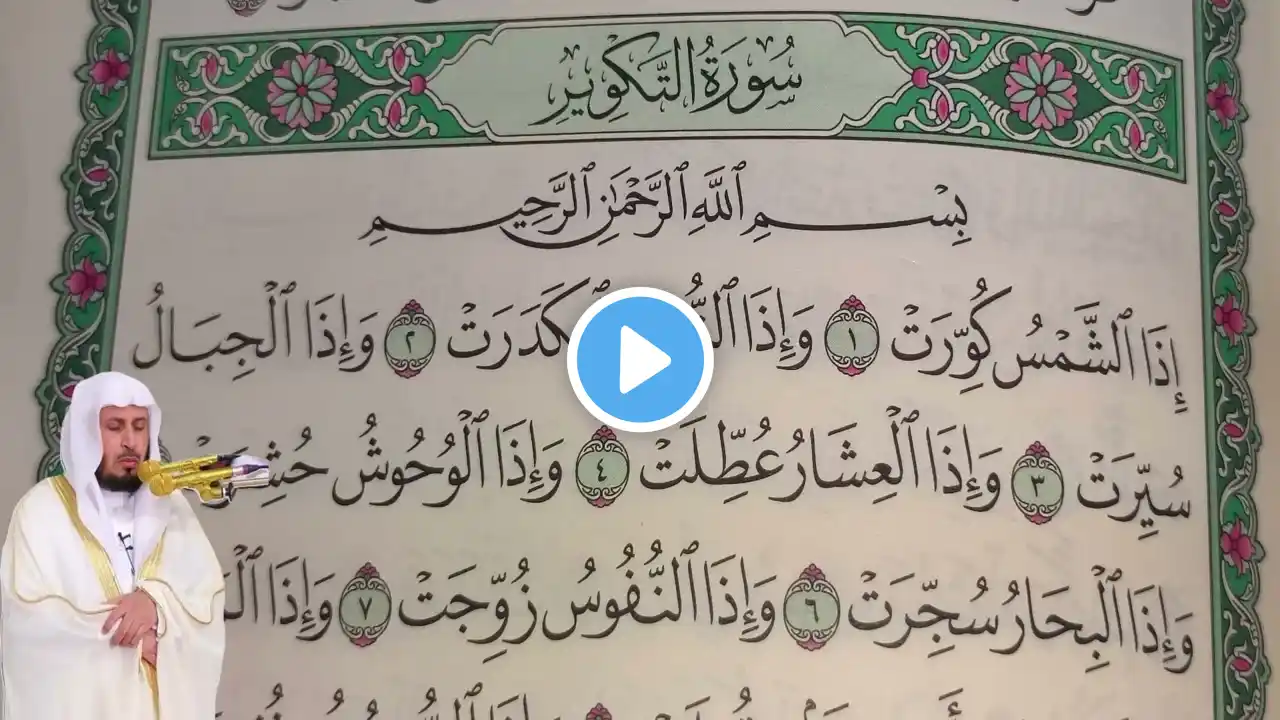 سُورَةُ التَّكْوِيرِ
بِسْمِ ٱللَّهِ ٱلرَّحْمَٰنِ ٱلرَّحِيمِ
إِذَا ٱلشَّمْسُ كُوِّرَتْ ١ وَإِذَا ٱنكَدَرَتْ ٢ وَإِذَا ٱلْجِبَالُ
سُيِّرَتْ ٣ وَإِذَا ٱلْعِشَارُ عُطِّلَتْ ٤ وَإِذَا ٱلْوُحُوشُ حُشِرَتْ
وَإِذَا ٱلْبِحَارُ سُجِّرَتْ ٦ وَإِذَا ٱلنُّفُوسُ زُوِّجَتْ ٧ وَإِذَا